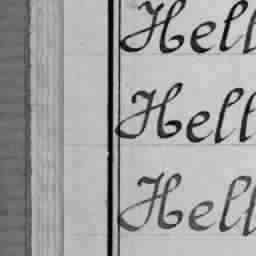 Hell
Hell
Hell